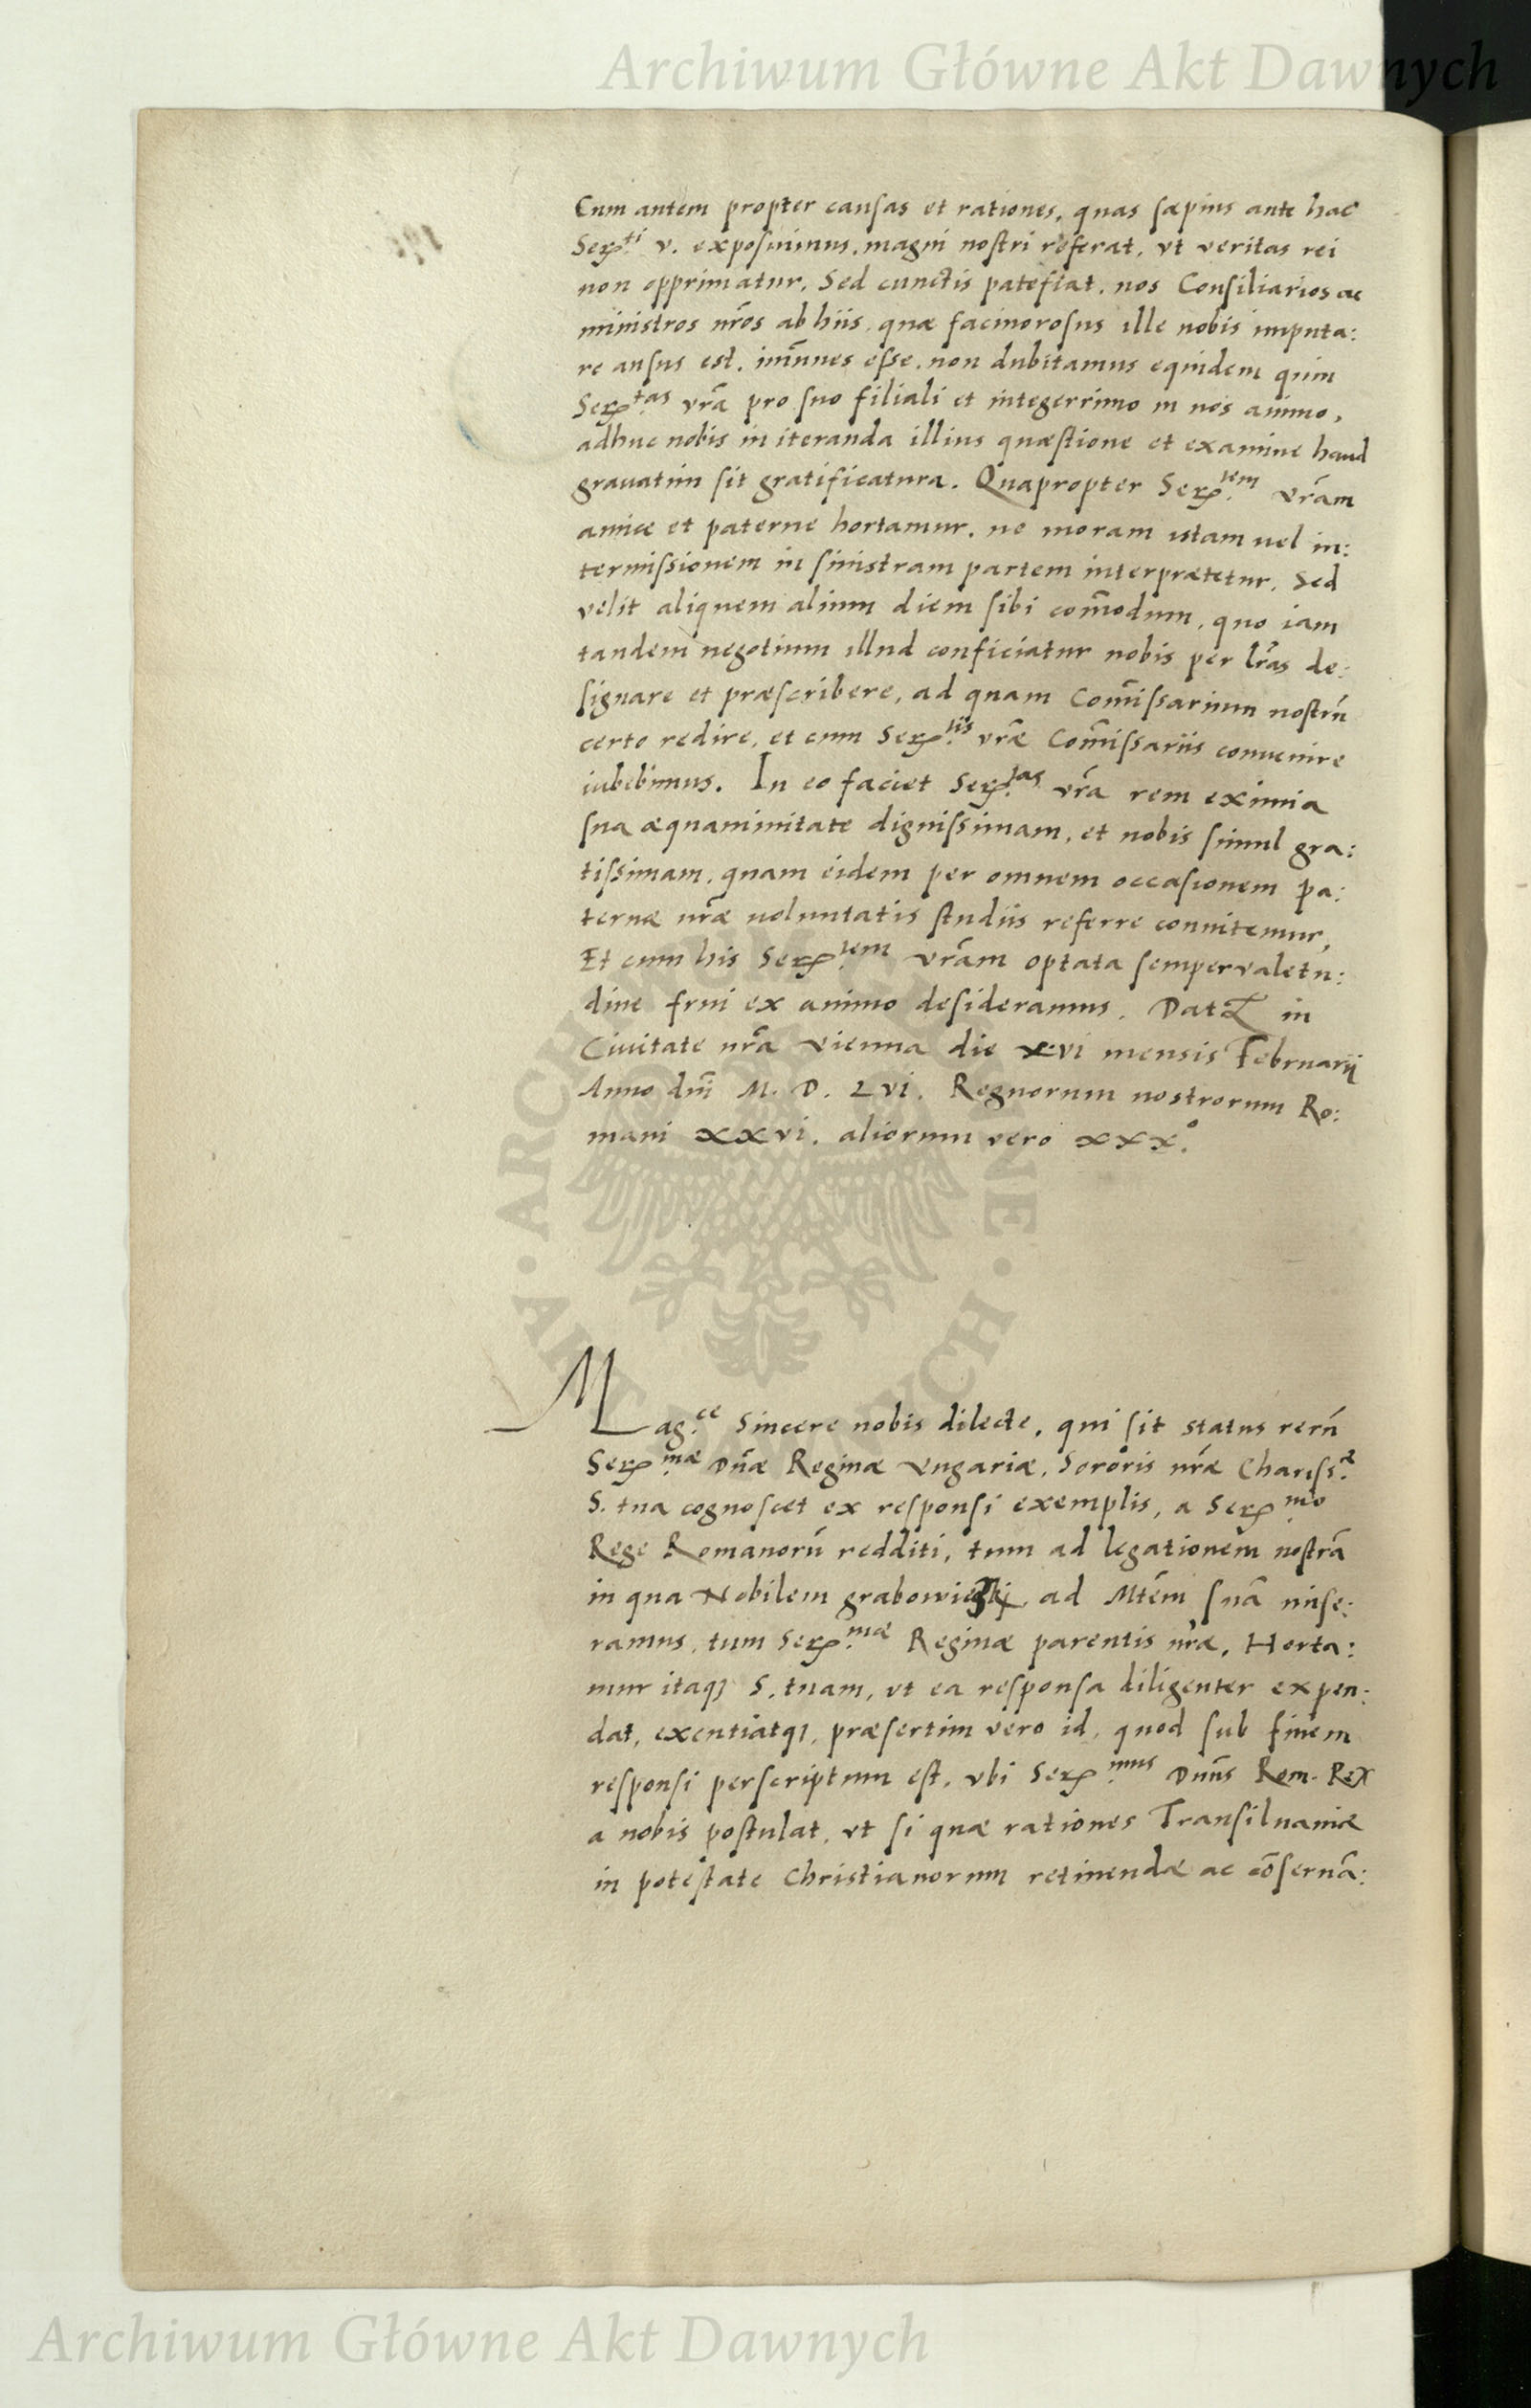 Archiwum Główne Akt Dawnych
Cum autem propter causas et rationes, quas sæpius ante hac
Ser.ti v. exposuimus, magni nostri referat, vt veritas rei
non opprimatur, Sed cunctis patefiat, nos Consiliarios ac
ministros nr̃os ab hiis, quæ facinorosus ille nobis imputa:
re ausus est, im̃unes esse, non dubitamus equidem quin
Ser.tas vr̃a pro suo filiali et integerrimo in nos animo,
adhuc nobis in iteranda illius quæstione et examine haud
grauatim sit gratificatura. Quapropter Ser.tem vr̃am
amice et paterne hortamur, ne moram istam uel in:
termissionem in sinistram partem interprætetur, Sed
velit aliquem alium diem sibi com̃odum, quo iam
tandem negotium illud conficiatur nobis per lr̃as de:
signare et præscribere, ad quam Com̃issarium nostrũ
certo redire, et cum Ser.tis vr̃æ Com̃issariis conuenire
iubebimus. In eo faciet Ser.tas vr̃a rem eximia
sua æquanimitate dignissimam, et nobis simul gra:
tissimam, quam eidem per omnem occasionem pa:
ternæ nr̃æ uoluntatis studiis referre connitemur,
Et cum his Ser.tem vr̃am optata semper valetu:
dine frui ex animo desideramus. Dat in
Ciuitate nr̃a Vienna die xvi mensis Februarij
Anno dñi M. D. Lvi. Regnorum nostrorum Ro:
mani xxvi. aliorum vero xxx.o
ARCHIWUM GŁÓWNE AKT DAWNYCH
Mag.ce Sincere nobis dilecte, qui sit status rerũ
Ser.mæ Dñæ Reginæ Vngariæ, Sororis nr̃æ Chariss.æ
S. tua cognoscet ex responsi exemplis, a Ser.mo
Rege Romanorũ redditi, tum ad legationem nostrã
in qua Nobilem ad Mtẽm suã mise:
ramus, tum Ser.mæ Reginæ parentis nr̃æ, Horta:
mur itaqꝫ S. tuam, vt ea responsa diligenter expen:
dat, excutiatqꝫ, præsertim vero id, quod sub finem
responsi perscriptum est, vbi Ser.mus Dnũs Rom. Rex
a nobis postulat, vt si quæ rationes Transiluaniæ
in potestate Christianorum retinendæ ac cõseruã:
Archiwum Główne Akt Dawnych